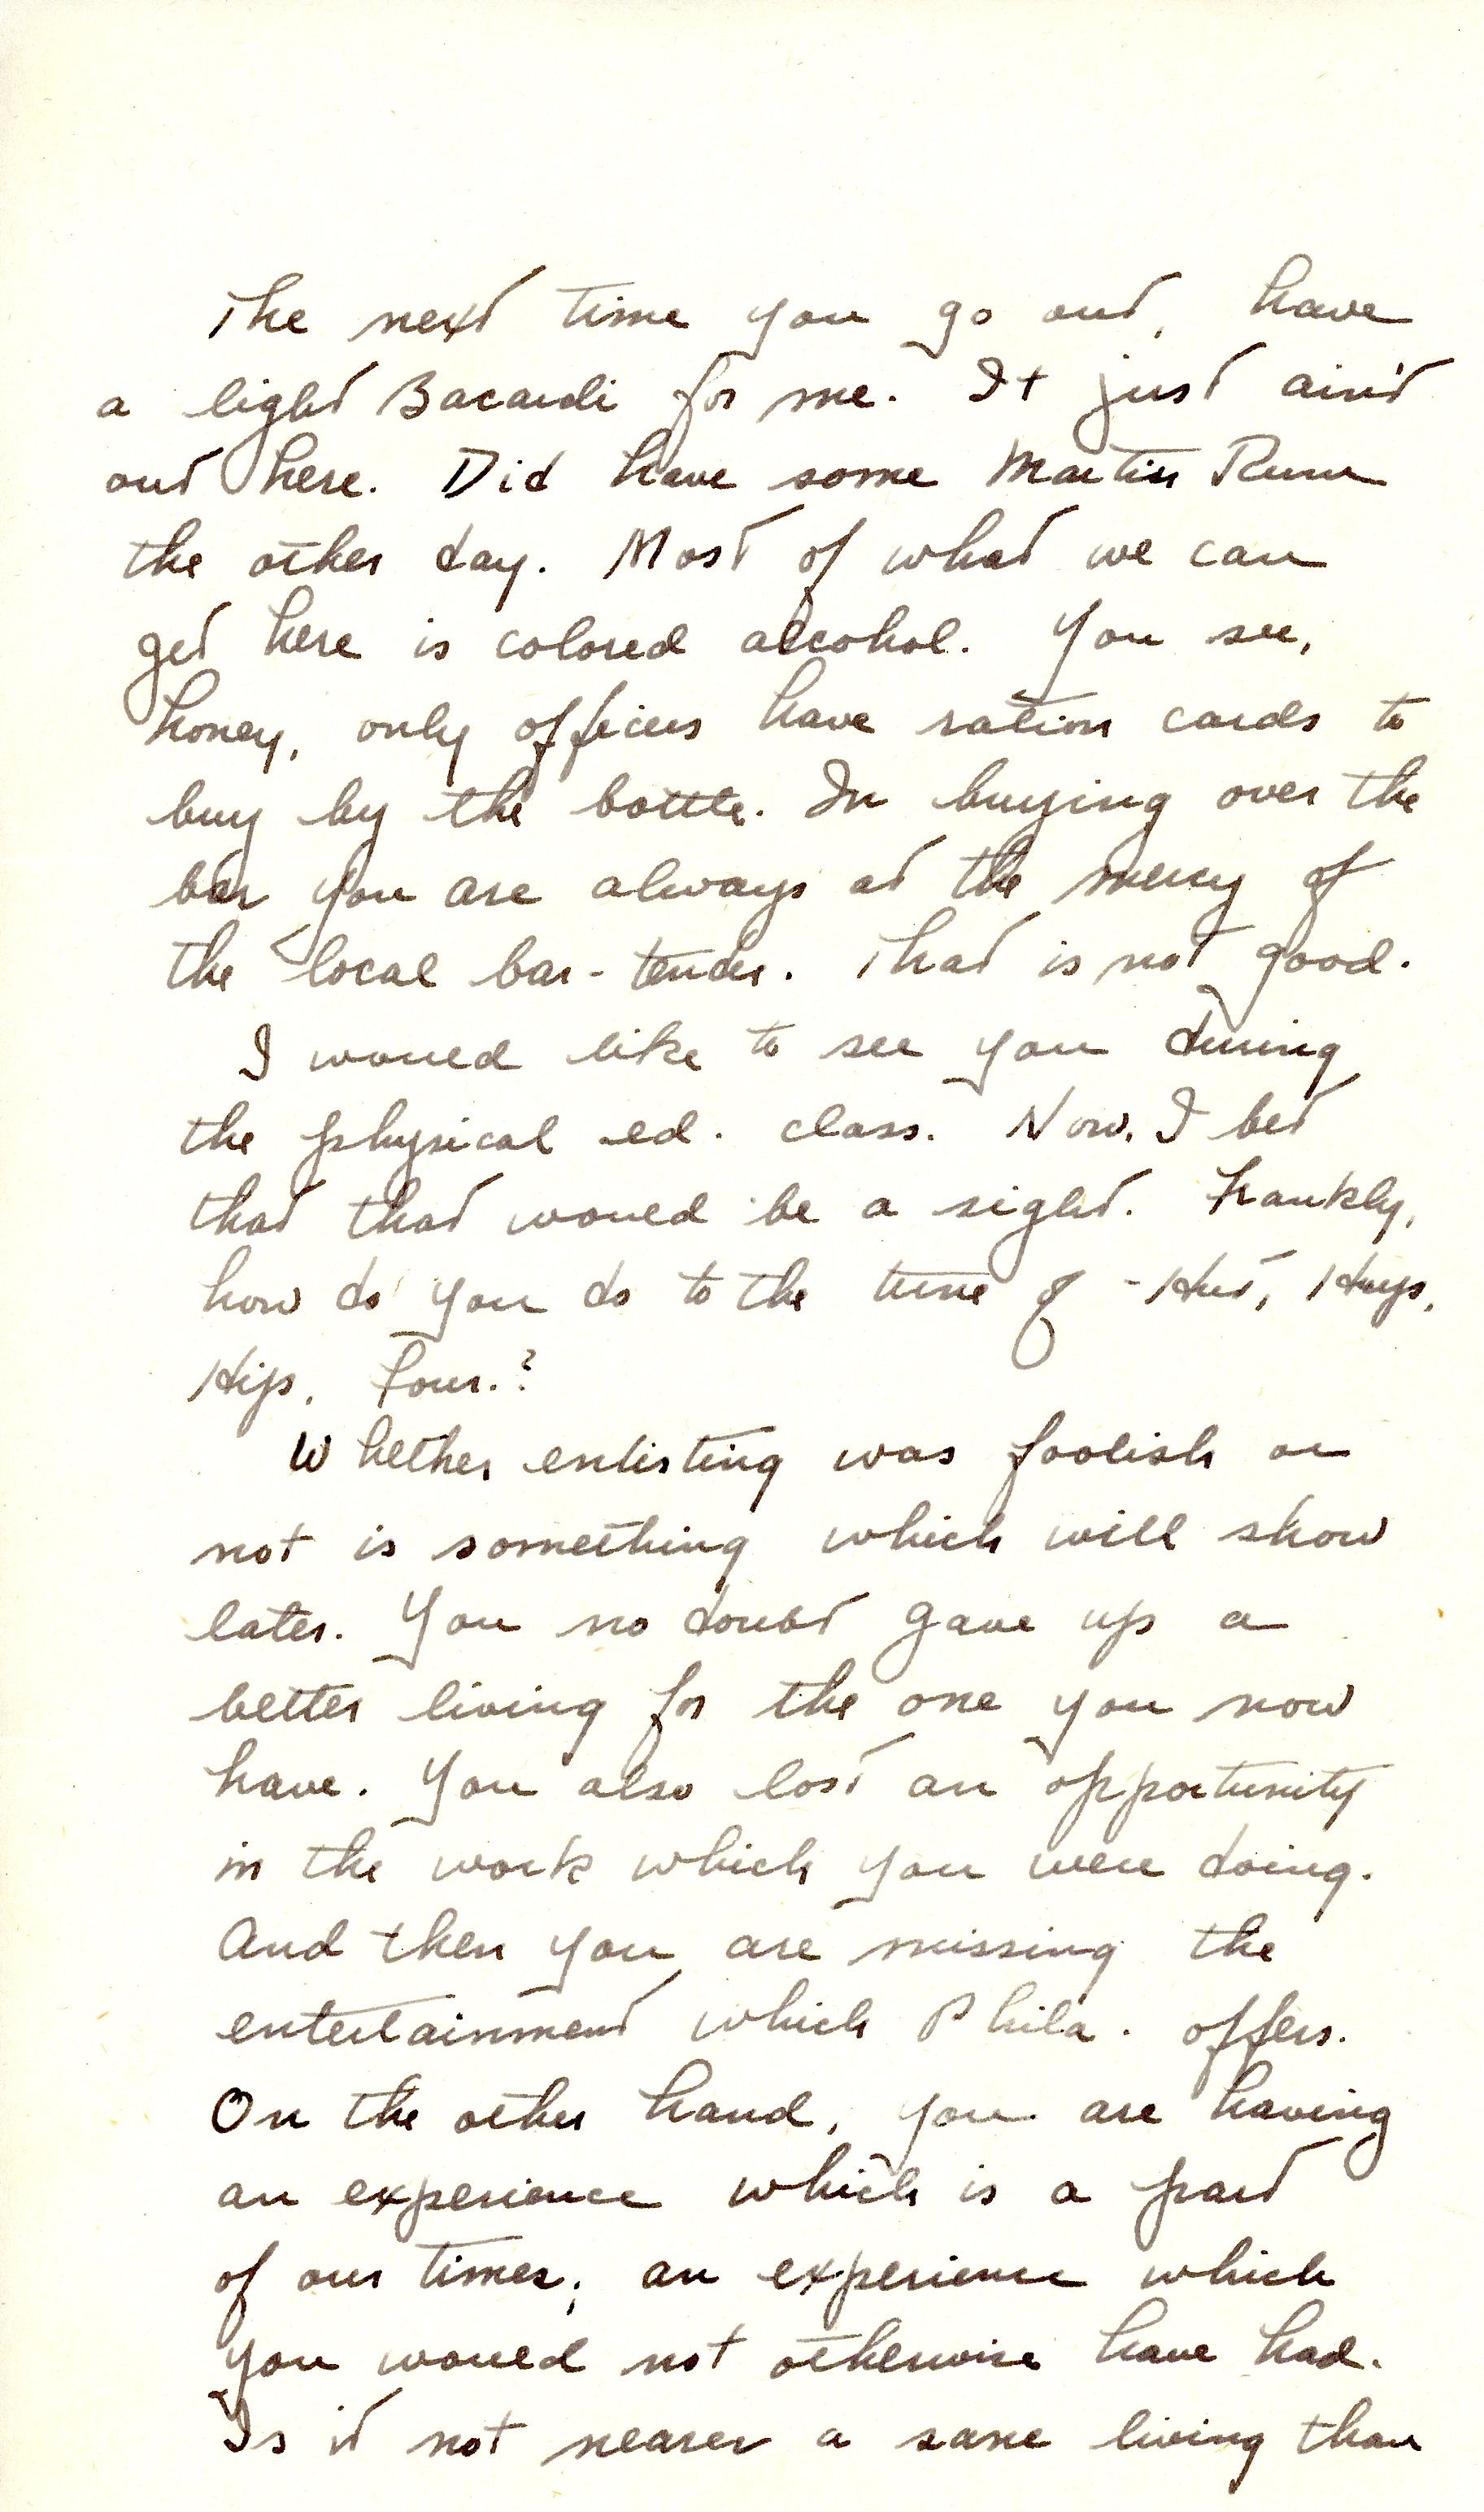 The next time you go out, have
a light Bacardi for me. It just ain't
out here. Did have some Martin Rum
the other day. Most of what we can
get here is colored alcohol. You see,
honey, only officers have ration cards to
buy by the bottle. In buying over the
bar you are always at the mercy of
the local bar-tender. That is not good.
I would like to see you during
the physical ed. class. Now, I bet
that that would be a sight. Frankly,
how do you do to the tune of - Hut, Hups,
Hips, Four.?
Whether enlisting was foolish or
not is something which will show
later. You no doubt gave up a
better living for the one you now
have. You also lost an opportunity
in the work which you were doing.
And then you are missing the
entertainment which Phila. offers.
On the other hand, you are having
an experience which is a part
of our times; an experience which
you would not otherwise have had.
Is it not nearer a sane living than